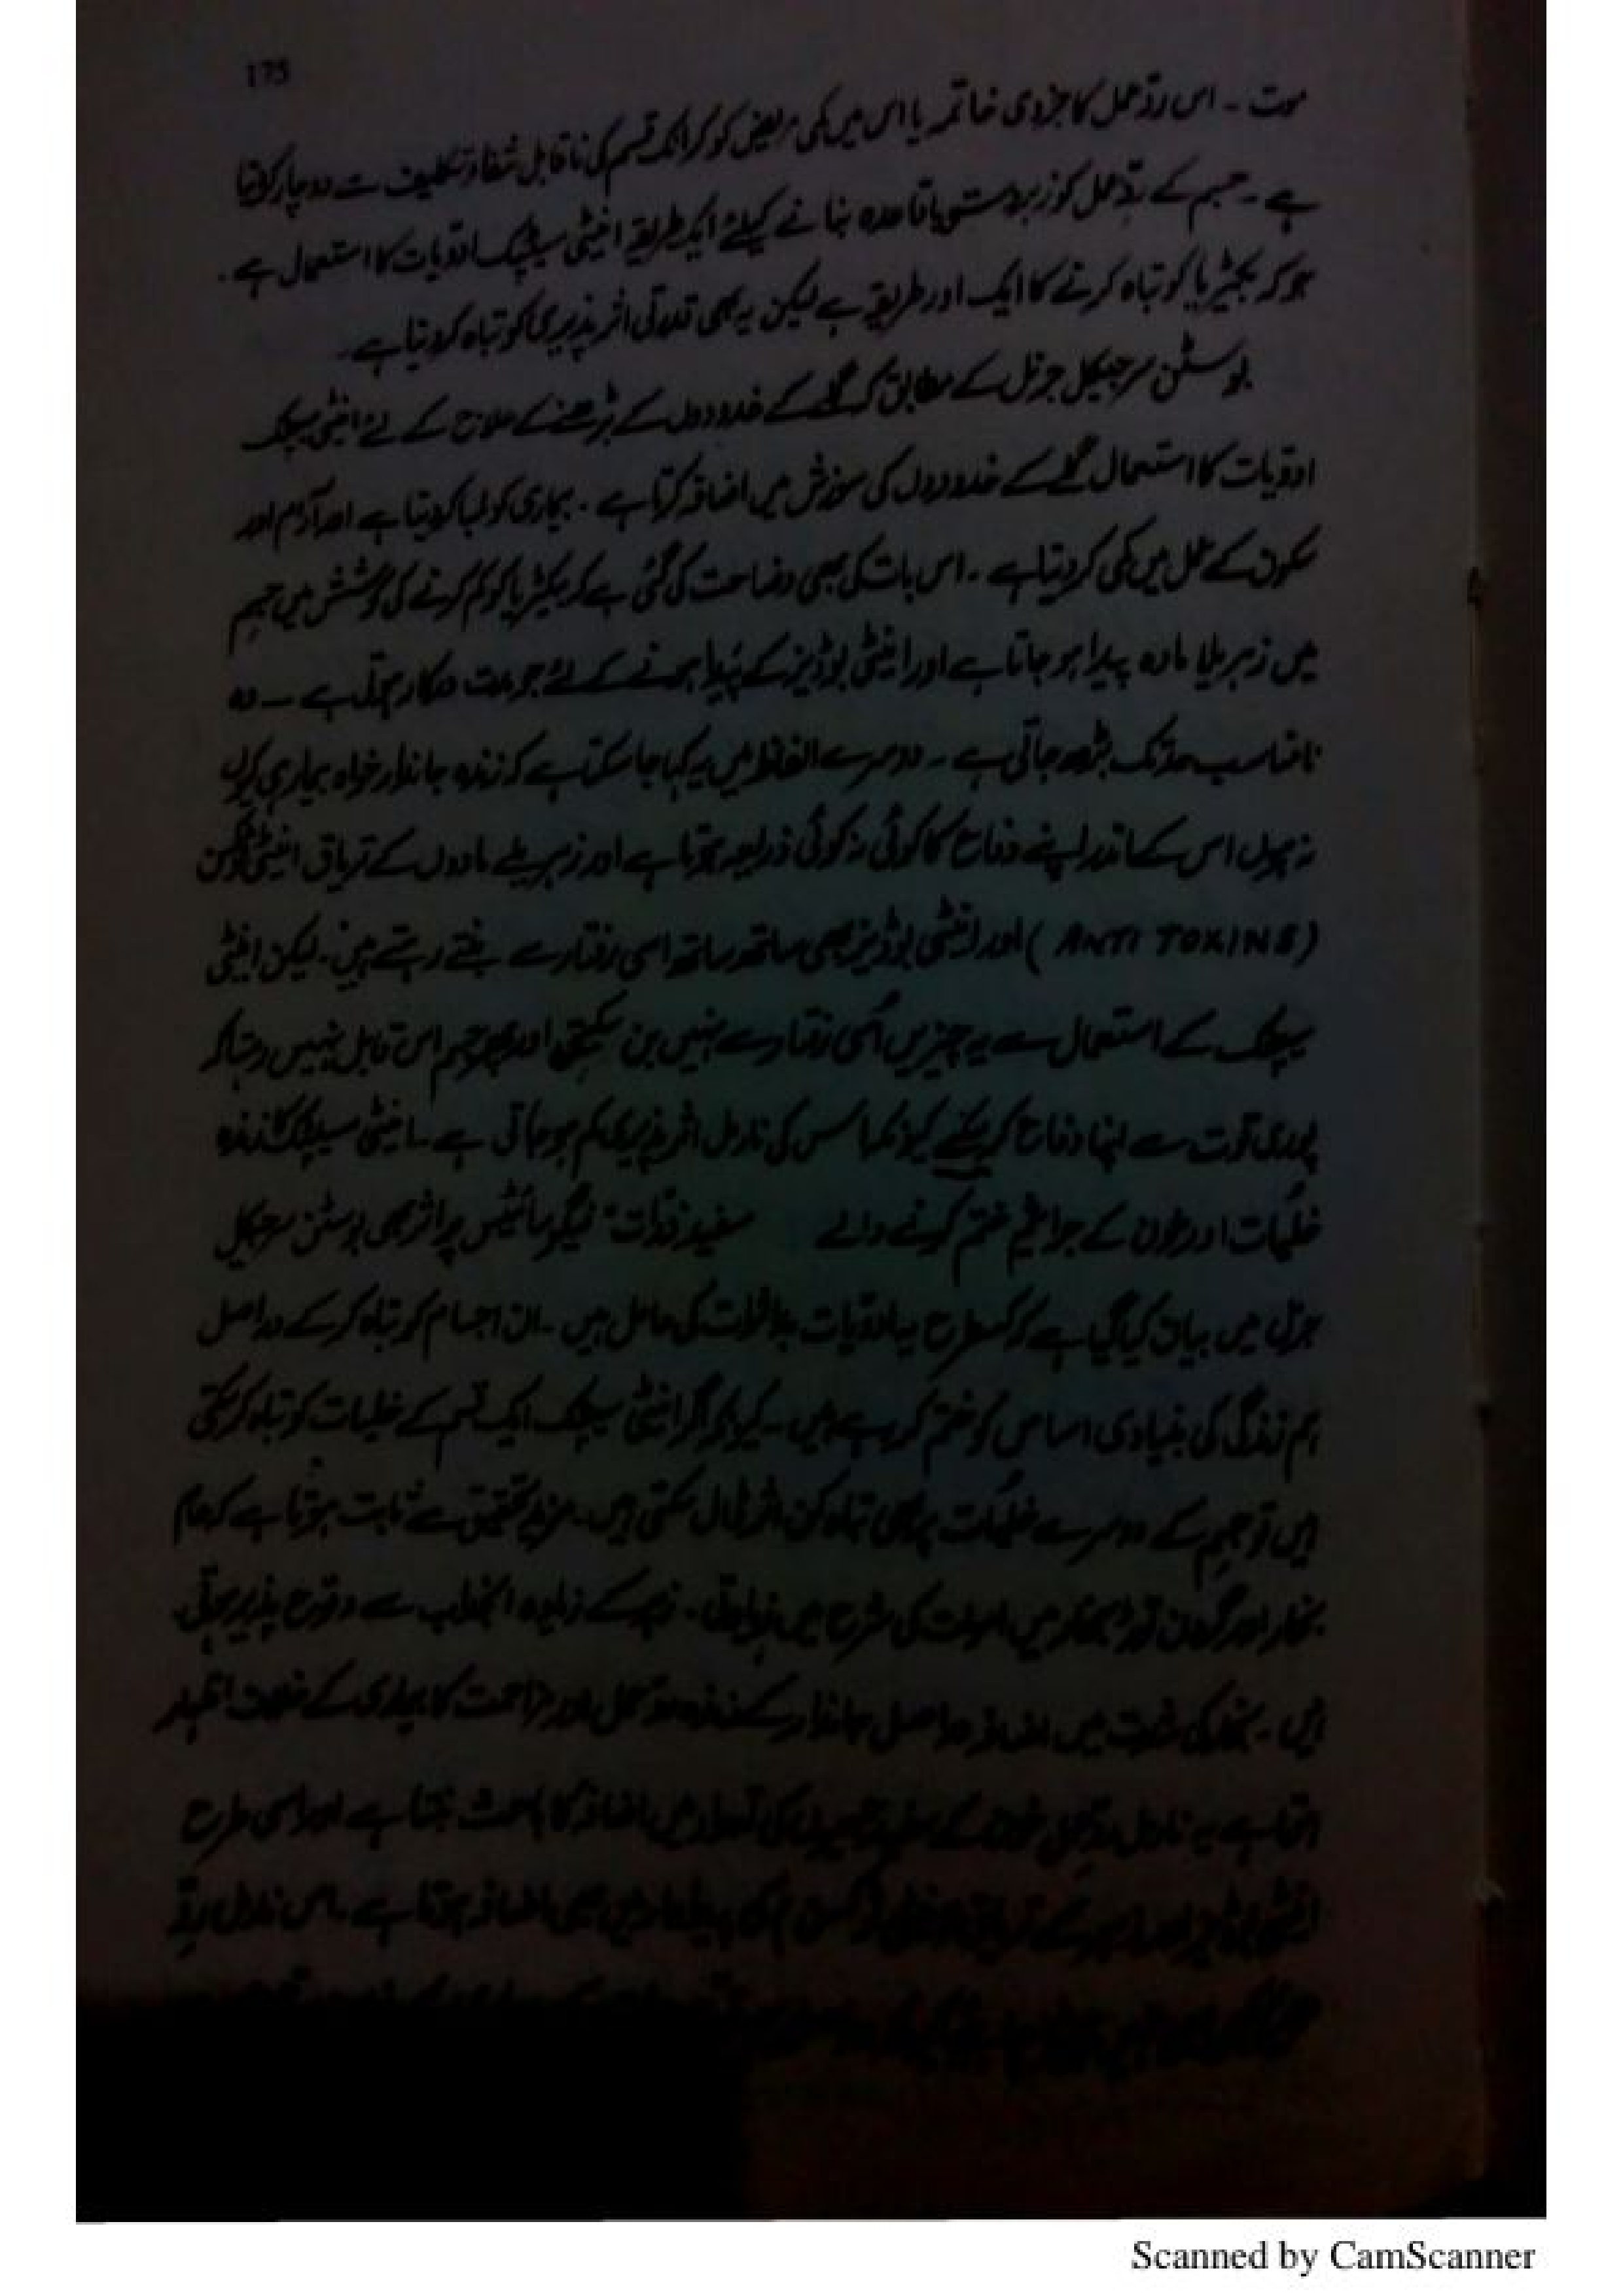 175
موت ۔ اس ردّ عمل کا جزوی خاتمہ یا اس میں کمی مریض کو کرانک قسم کی ناقابل شفا تکلیف سے دوچار کر دیتا
ہے ۔ جسم کے ردّ عمل کو زبردستی باقاعدہ بنانے کیلئے ایک طریقہ اینٹی سیپٹک ادویات کا استعمال ہے ۔
جو کہ بیکٹیریا کو تباہ کرنے کا ایک اور طریقہ ہے لیکن یہ بھی قدرتی اثر پذیری کو تباہ کر دیتا ہے ۔
بوسٹن سرجیکل جرنل کے مطابق کہ گلے کے غدودوں کے بڑھنے کے علاج کے لئے اینٹی سیپٹک
ادویات کا استعمال گلے کے غدودوں کی سوزش میں اضافہ کرتا ہے ۔ بیماری کو لمبا کر دیتا ہے اور آرام اور
سکون کے عمل میں کمی کر دیتا ہے ۔ اس بات کی بھی وضاحت کی گئی ہے کہ بیکٹریا کو کم کرنے کی کوشش میں جسم
میں زہریلا مادہ پیدا ہو جاتا ہے اور اینٹی بوڈیز کے پیدا ہونے کے لئے جو مدت درکار ہوتی ہے ــ وہ
نامناسب حد تک بڑھ جاتی ہے ۔ دوسرے الفاظ میں یہ کہا جا سکتا ہے کہ زندہ جاندار خواہ بیماری کیوں
نہ ہوں اس کے اندر اپنے دفاع کا کوئی نہ کوئی ذریعہ ہوتا ہے اور زہریلے مادوں کے تریاق اینٹی ٹوکسن
(ANTI TOXINS) اور اینٹی بوڈیز بھی ساتھ ساتھ اسی رفتار سے بنتے رہتے ہیں ۔ لیکن اینٹی
سیپٹک کے استعمال سے یہ چیزیں اُسی رفتار سے نہیں بن سکتیں اور پھر جسم اس قابل نہیں رہتا کہ
پوری قوت سے اپنا دفاع کر سکے کیونکہ اس کی نارمل اثر پذیری کم ہو جاتی ہے ۔ اینٹی سیپٹک کا زندہ
خلیات اور خون کے جراثیم ختم کرنے والے سفید ذرات " فیگوسائٹیس پر اثر بھی بوسٹن سرجیکل
جرنل میں بیان کیا گیا ہے کہ کسطرح یہ ادویات بد اثرات کی حامل ہیں ۔ ان اجسام کو تباہ کر کے دراصل
ہم زندگی کی بنیادی اساس کو ختم کر رہے ہیں ۔ کیونکہ اگر اینٹی سیپٹک ایک قسم کے خلیات کو تباہ کر سکتی
ہیں تو جسم کے دوسرے خلیات پر بھی تباہ کن اثر ڈال سکتی ہیں ۔ مزید تحقیق سے ثابت ہوتا ہے کہ عام
بخار اور گردن توڑ بخار میں اموات کی شرح میں زیادتی ۔ کے زیادہ سے وقوع پذیر ہوتی
ہیں ۔ بخار کی شدت میں اضافہ دراصل جاندار کے زندہ اور مزاحمت کا بیماری کے خلاف اظہار
ہوتا ہے یہ نارمل ردّ عمل خون کے سفید جسیموں کی تعداد میں اضافہ کا باعث بنتا ہے اور اسی طرح
اینٹی بوڈیز اور زہر کے تریاق کی پیداوار میں بھی اضافہ ہوتا ہے ۔ اس نارمل ردّ
Scanned by CamScanner